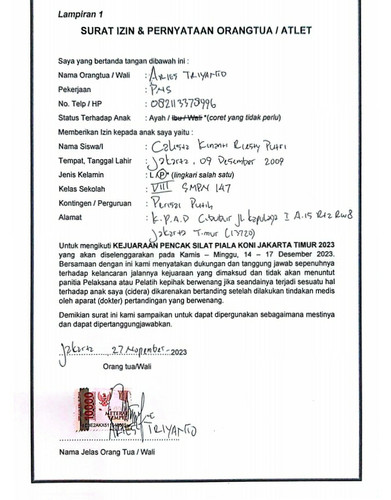 Lampiran 1
SURAT IZIN & PERNYATAAN ORANGTUA / ATLET
Saya yang bertanda tangan dibawah ini :
Nama Orangtua / Wali : ARIES TRIYANTO
Pekerjaan : PNS
No. Telp / HP : 082113378996
Status Terhadap Anak : Ayah / Ibu / Wali *(coret yang tidak perlu)
Memberikan Izin kepada anak saya yaitu :
Nama Siswa/I : Calista Kinanti Rizky Putri
Tempat, Tanggal Lahir : Jakarta, 09 Desember 2009
Jenis Kelamin : L / P * (lingkari salah satu)
Kelas Sekolah : VIII SMPN 147
Kontingen / Perguruan : Perisai Putih
Alamat : K.P.A.D Cibubur Jl. I A.15 Rt2 Rw8
Jakarta Timur (13720)
Untuk mengikuti KEJUARAAN PENCAK SILAT PIALA KONI JAKARTA TIMUR 2023
yang akan diselenggarakan pada Kamis – Minggu, 14 – 17 Desember 2023.
Bersamaan dengan ini kami menyatakan dukungan dan tanggung jawab sepenuhnya
terhadap kelancaran jalannya kejuaraan yang dimaksud dan tidak akan menuntut
panitia Pelaksana atau Pelatih kepihak berwenang jika seandainya terjadi sesuatu hal
terhadap anak saya (cidera) dikarenakan bertanding setelah dilakukan tindakan medis
oleh aparat (dokter) pertandingan yang berwenang.
Demikian surat ini kami sampaikan untuk dapat dipergunakan sebagaimana mestinya
dan dapat dipertanggungjawabkan.
Jakarta, 27 November 2023
Orang tua/Wali
10000
METERAI
TEMPEL
ARIES TRIYANTO
Nama Jelas Orang Tua / Wali